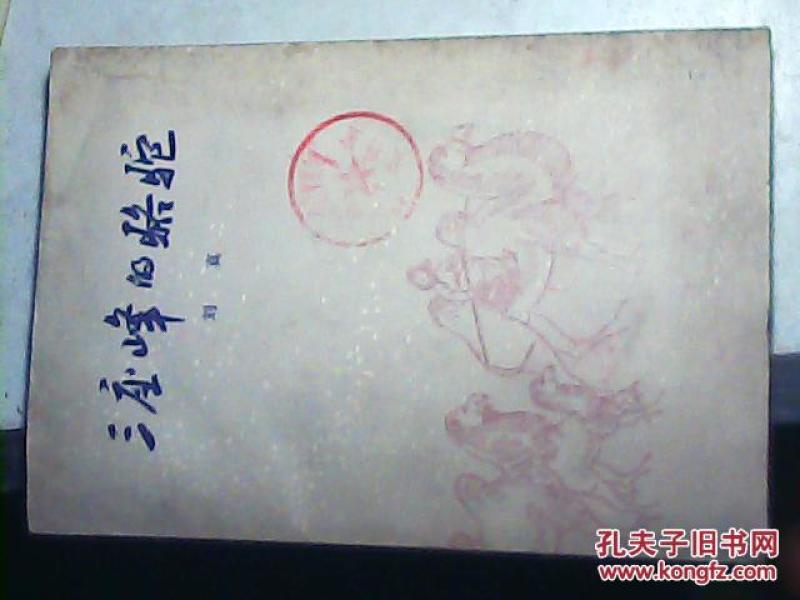 三座峰的骆驼
刘真
孔夫子旧书网
www.kongfz.com